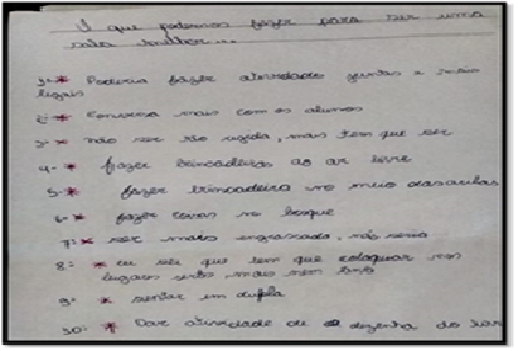 O que podemos fazer para ser uma
sala melhor...
1- * Poderia fazer atividade juntas e mais
legais
2- * Conversa mais com os alunos
3- * não ser tão rigida, mais tem que ser
4- * fazer brincadeiras ao ar livre
5- * fazer brincadeira no meio das aulas
6- * fazer coisas no bosque
7- * ser mais engraçada, não seria
8- * eu sei que tem que colaquar nos
lugares mais nem
9- * sentar em dupla
10- * Dar atividade de dezenha do